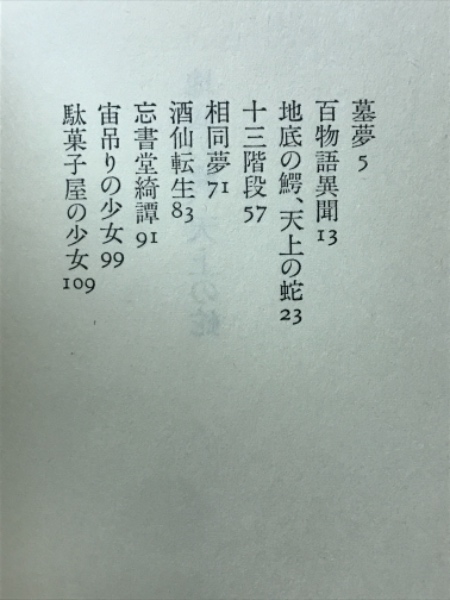 墓夢 5
百物語異聞 13
地底の鰐、天上の蛇 23
十三階段 57
相同夢 71
酒仙転生 83
忘書堂綺譚 91
宙吊りの少女 99
駄菓子屋の少女 109